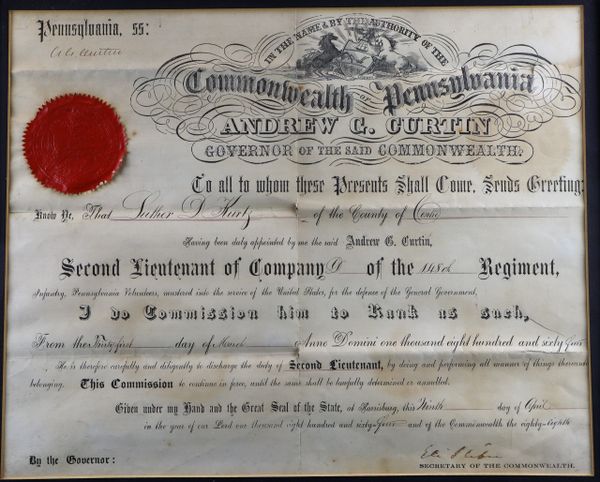 Pennsylvania, ss:
A G Curtin
IN THE NAME & BY THE AUTHORITY OF THE
Commonwealth OF Pennsylvania
ANDREW G. CURTIN
GOVERNOR OF THE SAID COMMONWEALTH.
To all to whom these Presents Shall Come, Sends Greeting:
Know Ye, That Luther D. Kurtz of the County of Centre
Having been duly appointed by me the said Andrew G. Curtin,
Second Lieutenant of Company D of the 148th Regiment,
Infantry, Pennsylvania Volunteers, mustered into the service of the United States, for the defence of the General Government,
I do Commission him to Rank as such,
From the Thirty first day of March Anno Domini one thousand eight hundred and sixty four
He is therefore carefully and diligently to discharge the duty of Second Lieutenant, by doing and performing all manner of things thereunto
belonging. This Commission to continue in force, until the same shall be lawfully determined or annulled.
Given under my Hand and the Great Seal of the State, at Harrisburg, this Ninth day of April
in the year of our Lord one thousand eight hundred and sixty-four and of the Commonwealth the eighty-eighth
By the Governor: Eli Slifer
SECRETARY OF THE COMMONWEALTH.